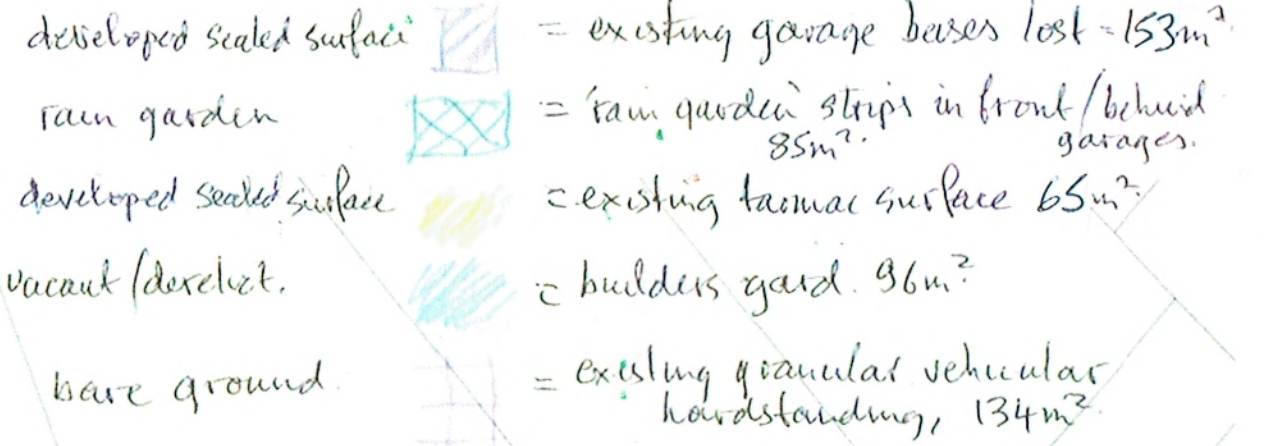 developed sealed surface = existing garage bases lost - 153m²
rain garden = 'rain garden' strips in front/behind
85m². garages.
developed sealed surface = existing tarmac surface 65m².
vacant/derelict. = builders yard. 96m²
bare ground. = existing granular vehicular
hardstanding, 134m².